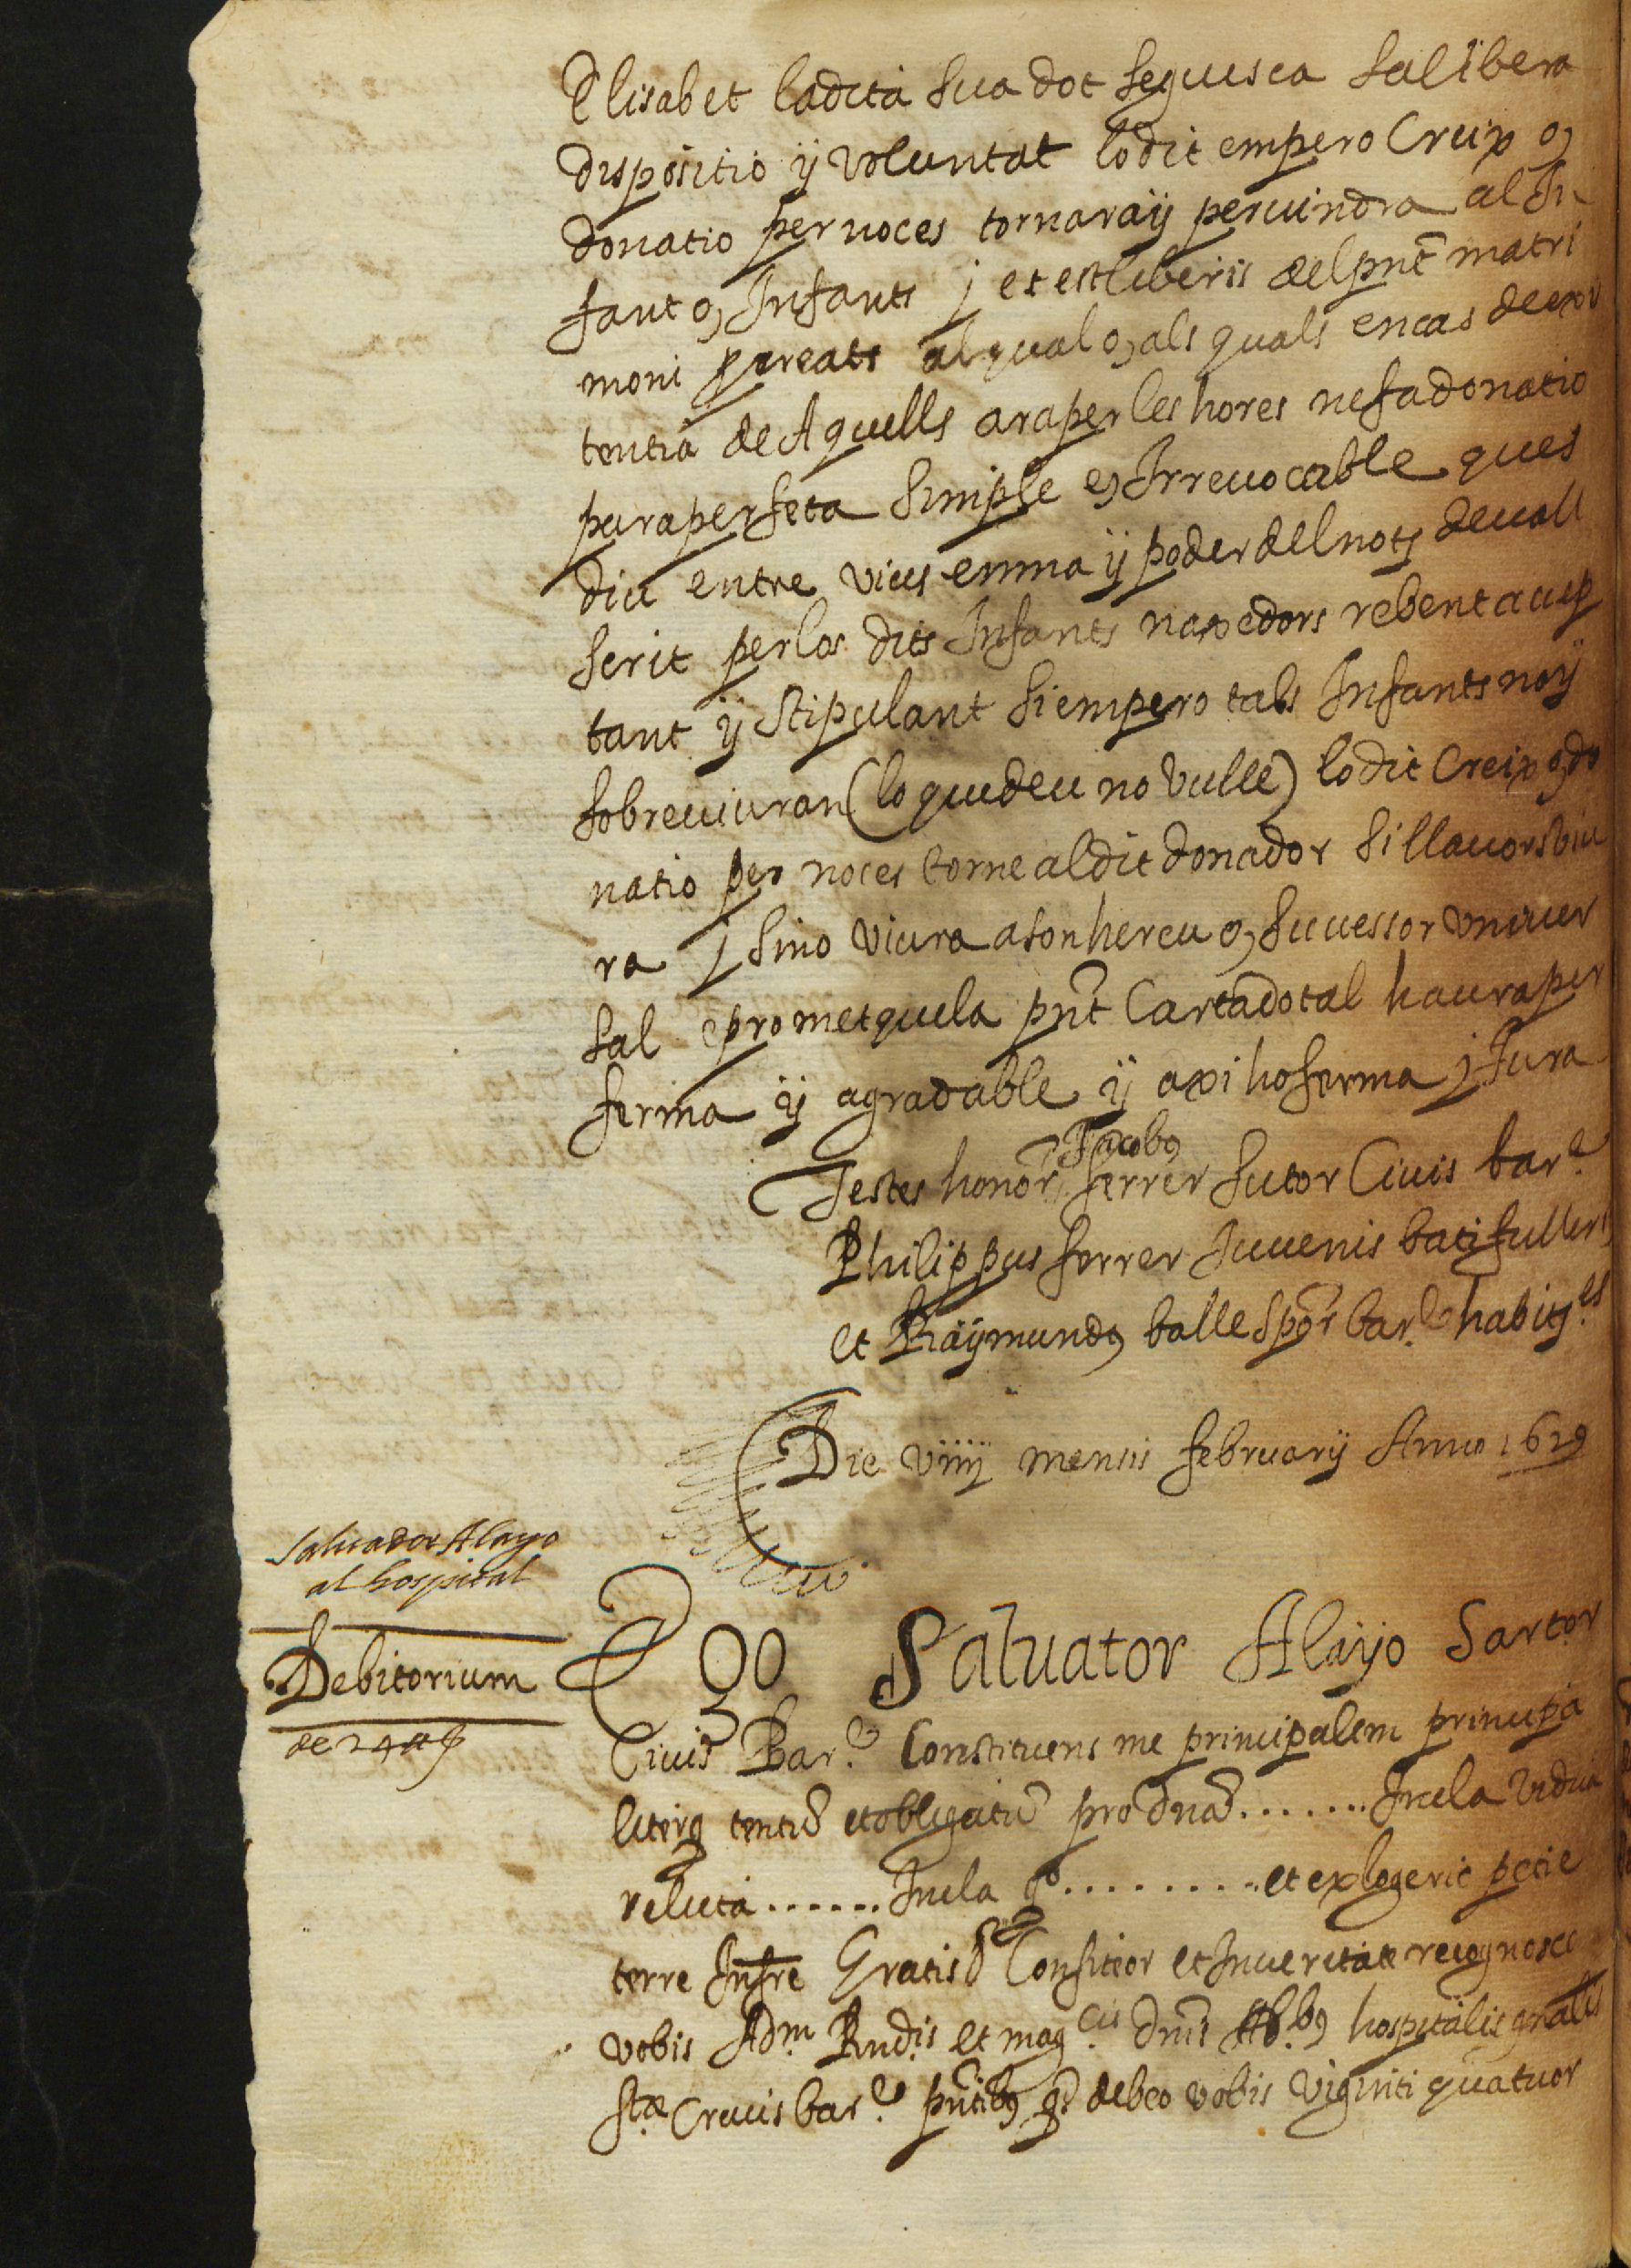 Elisabet ladita sua dot seguesca sa libera
dispositio ÿ voluntat lodit empero Creix o,
donatio per noces tornaraÿ peruindra al In
fant o, Infants j et est liberis del pnt matri
moni procreats al qual o, als quals en cas de exis
tentia de Aquells ara per les hores ne fa donatio
pura perfeta simple e, Irreuocable ques
diu entre vius en ma ÿ poder del not, deuall
scrit per los dits Infants naxedors rebent accep
tant ÿ stipulant Si empero tals Infants noÿ
sobreuiuran (lo que deu no vulle) lo dit Creix o, do
natio per noces torne al dit donador si llauors viu
ra j sino viura a son hereu o, successor vniuer
sal e promet que la pnt Carta dotal haura per
ferma ÿ agradable ÿ axi ho ferma j Jura
Testes honor. Jacob9 ferrer sutor Ciuis bar.e
Philippus ferrer Juuenis batifuller,
et Raÿmund9 balle spor bar.e habit,es
Die viiij mensis februarÿ Anno 1629
Saluador Alayo
al hospital
Debitorium
Ego Saluator Alayo Sartor
Ciuis Bar.e Constituens me principalem principa
literq tentu et obligatu pro dna ....... Incla vidua
relicta ...... Incla qo ......... et ex loge
terre Infre Gratis Confiteor et In ueritate recognosco
vobis Adm. Rndis et mag.cis dnis hospitalis gnalis
stæ Crucis bar.e pntib9 q debeo vobis viginti quatuor